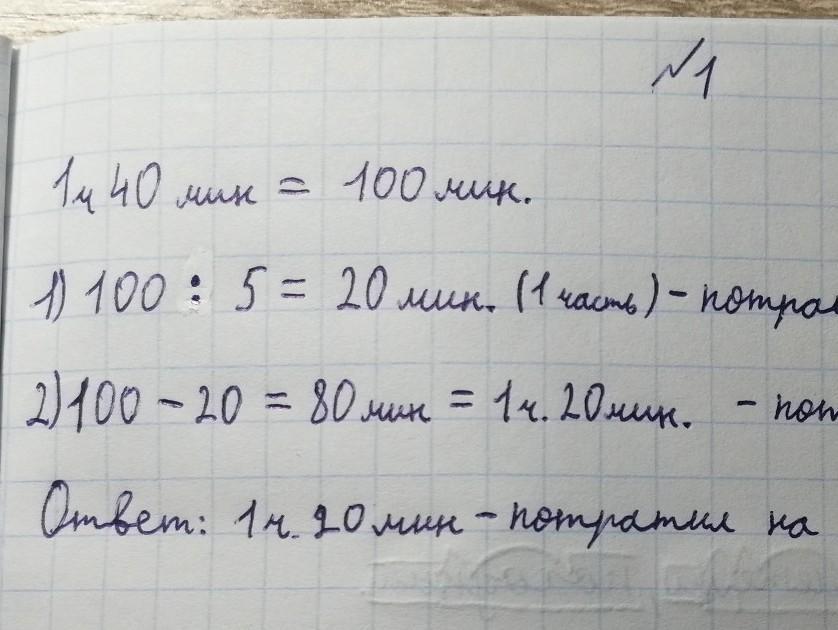 №1
1ч 40 мин = 100 мин.
1) 100 : 5 = 20 мин. (1 часть) - потрат
2) 100 - 20 = 80 мин = 1 ч. 20 мин. - пот
Ответ: 1 ч. 20 мин - потратил на